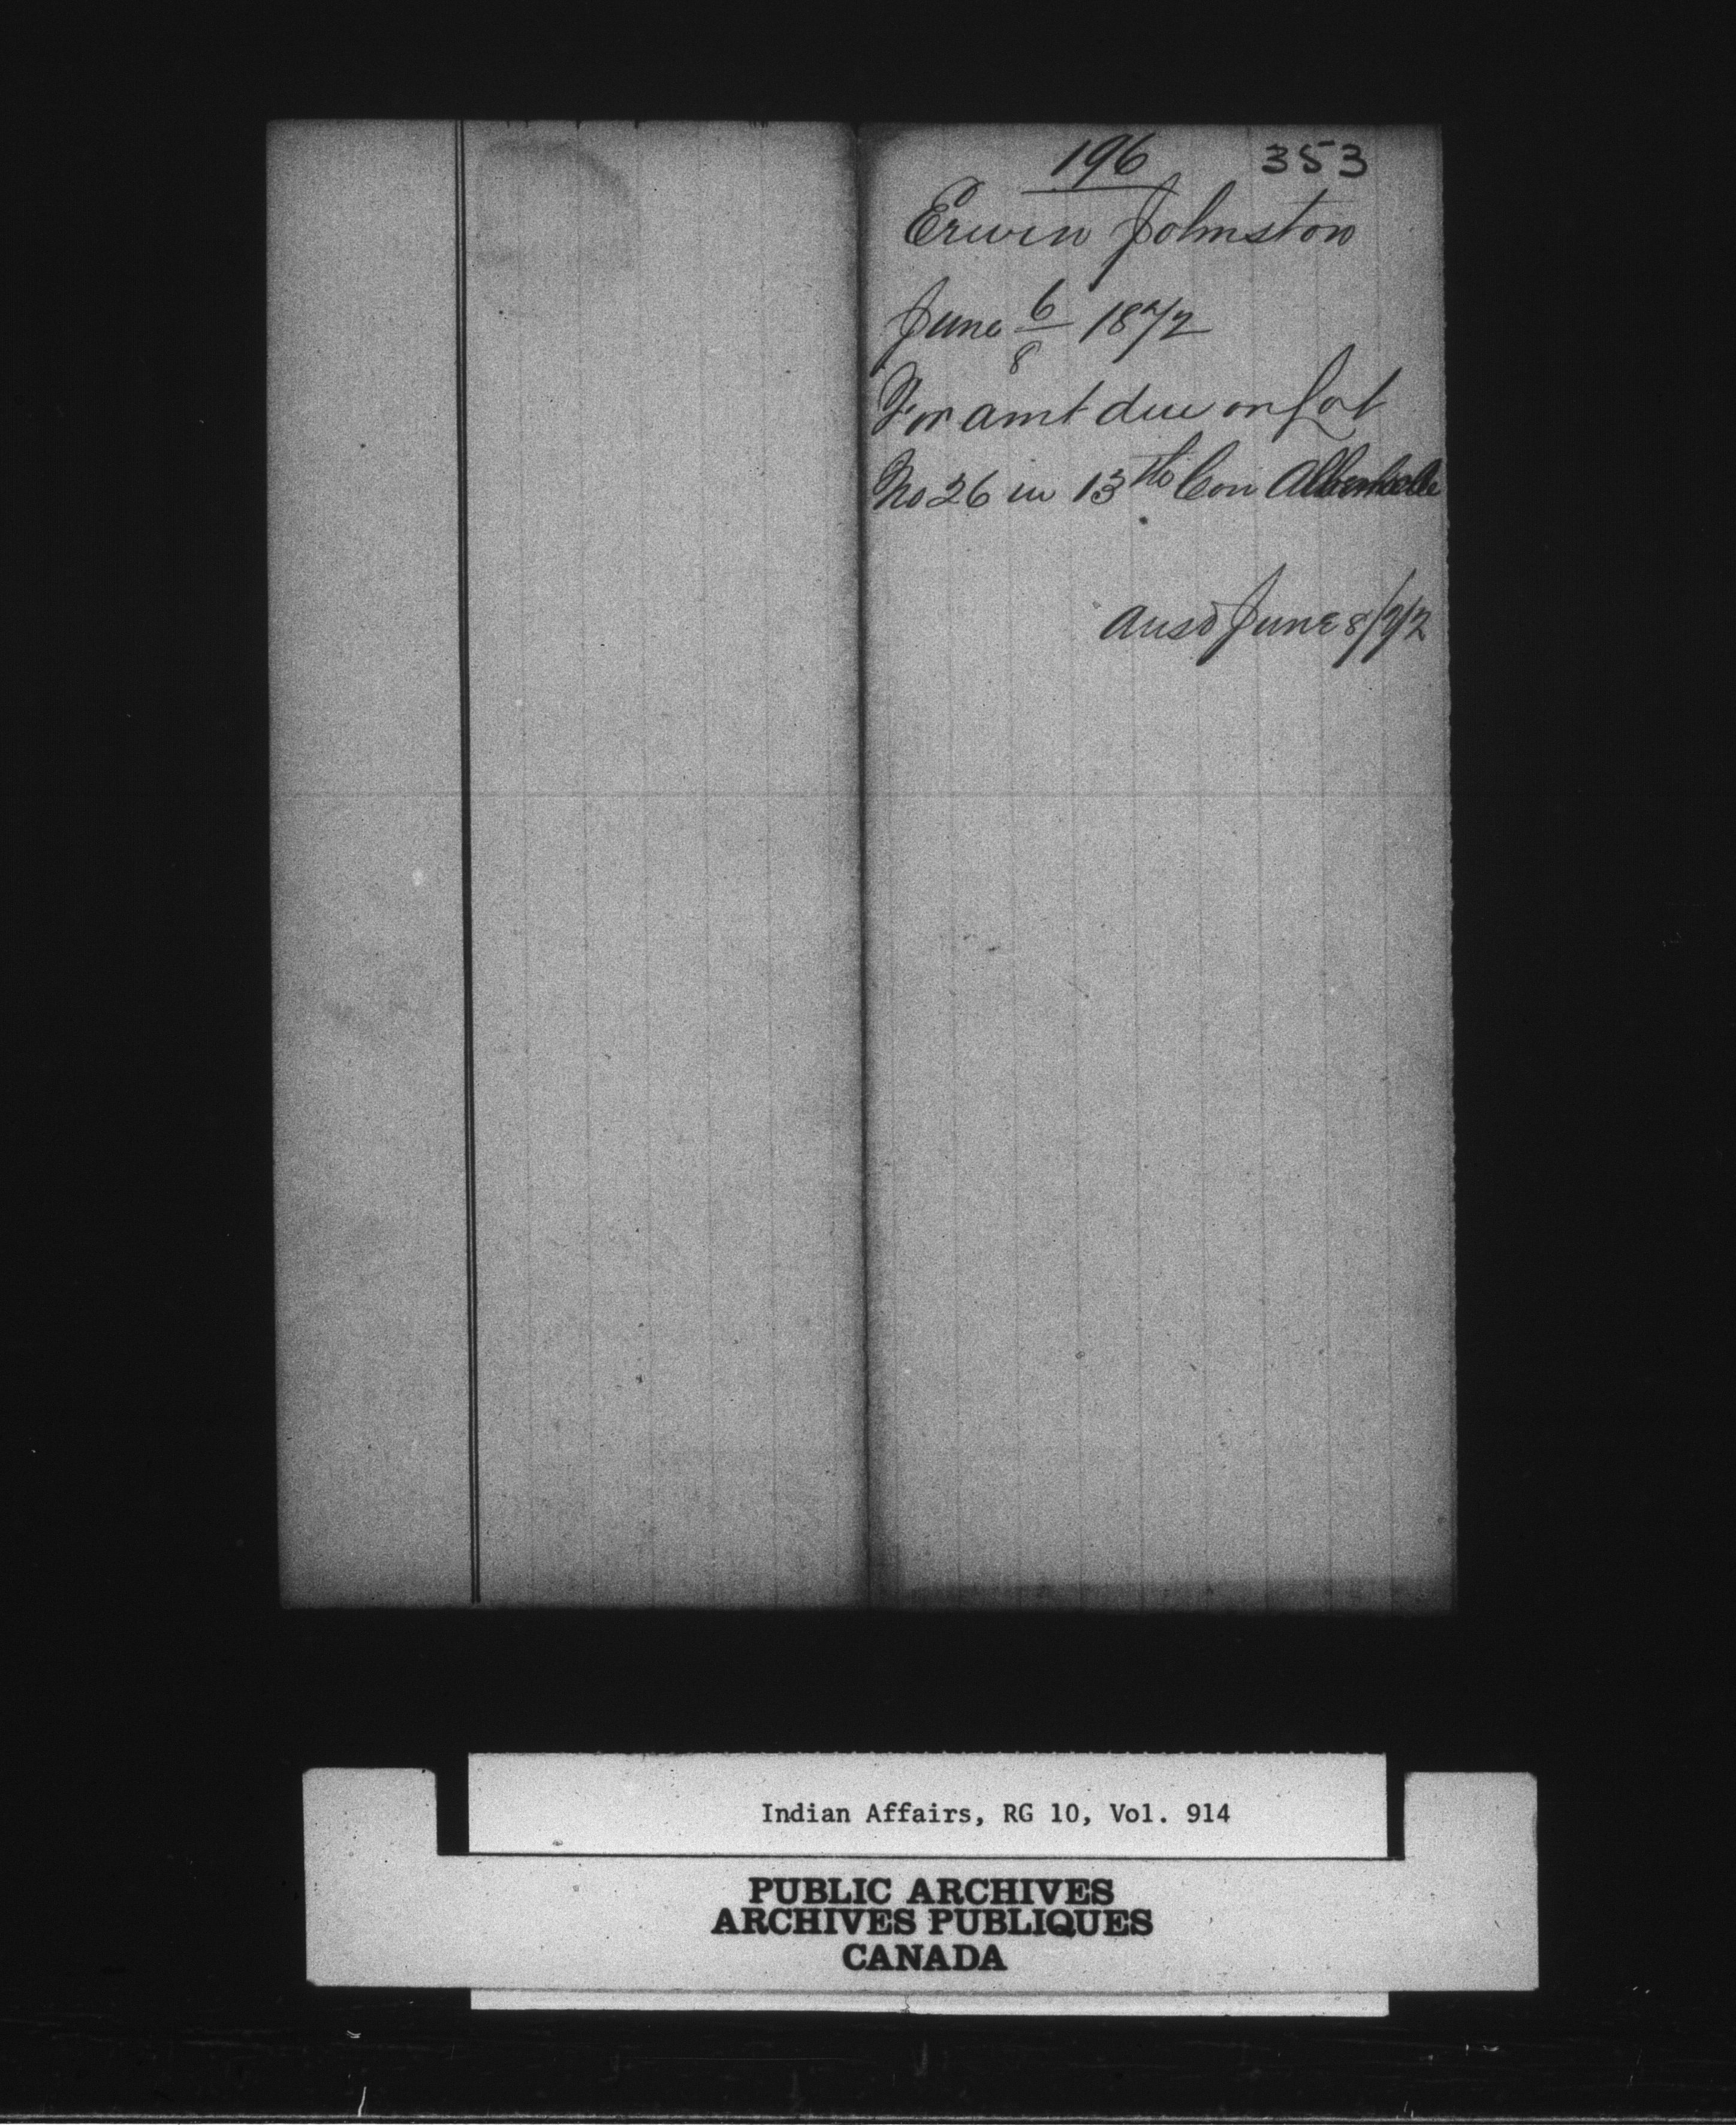 196 353
Erwin Johnston
June 6/8 1872
For amt due on Lot
No 26 in 13th Con Albemarle
Ansd June 8/72
Indian Affairs, RG 10, Vol. 914
PUBLIC ARCHIVES
ARCHIVES PUBLIQUES
CANADA